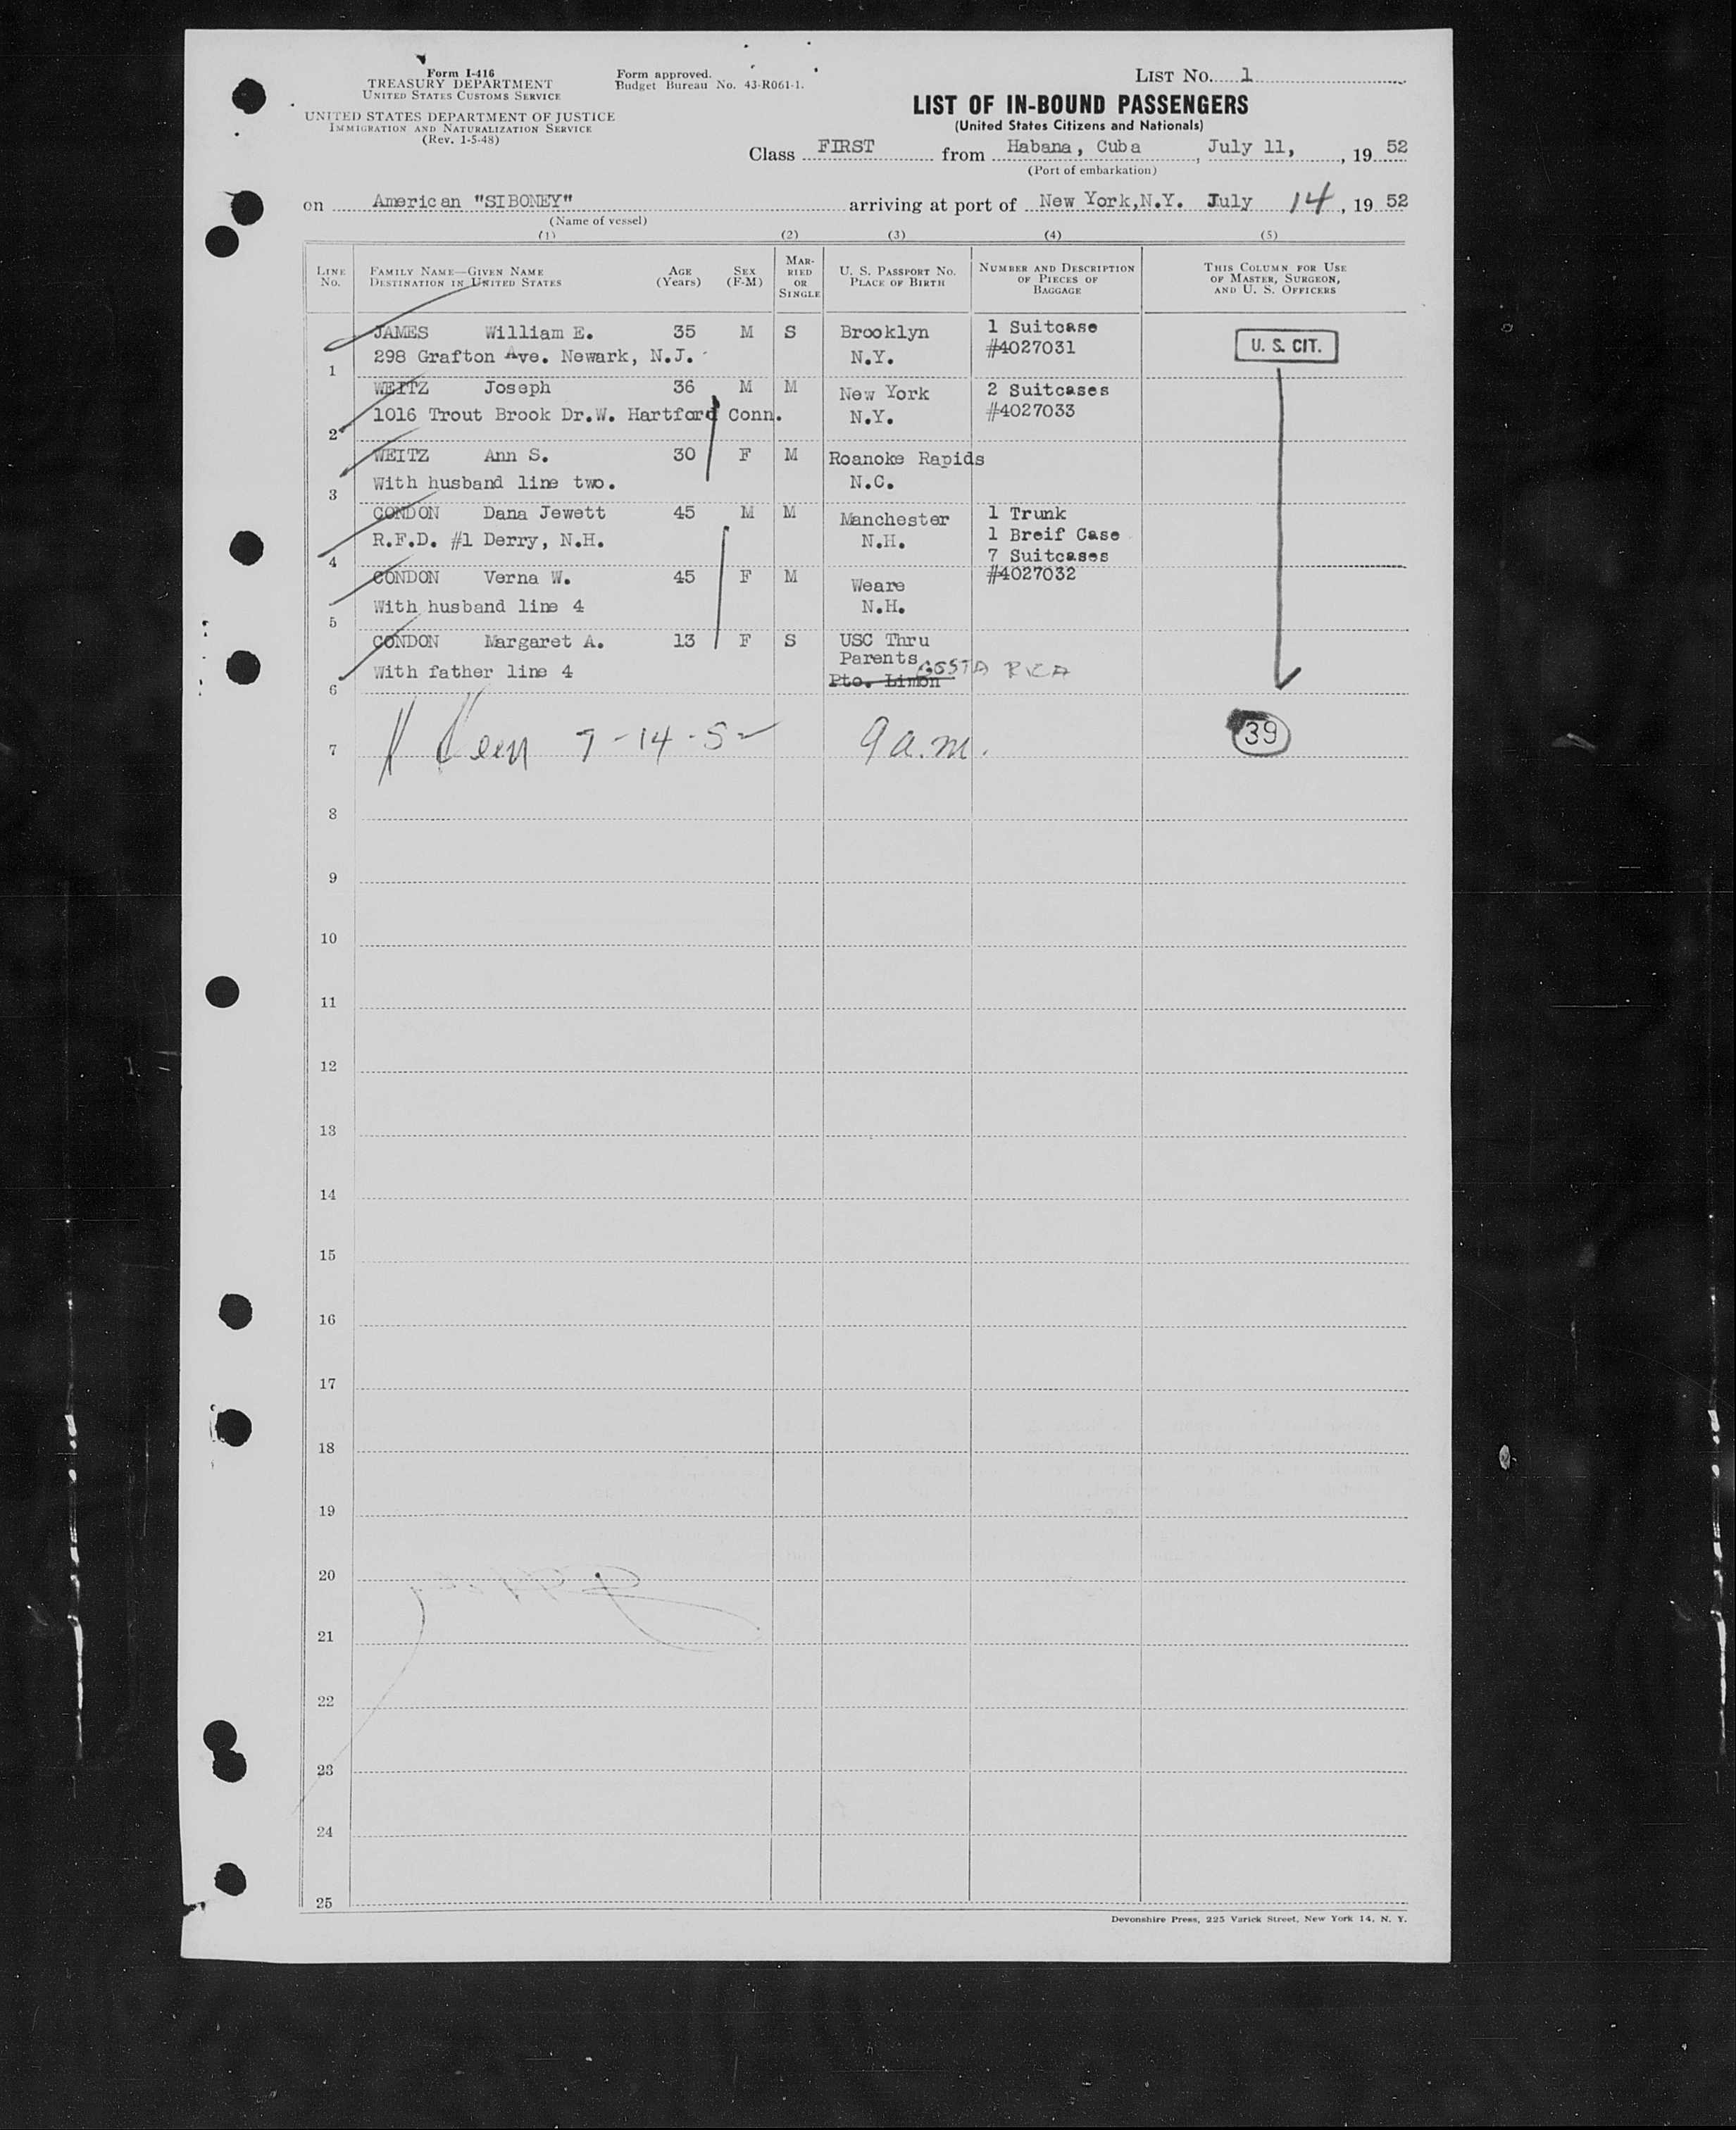 Form I-416
TREASURY DEPARTMENT
UNITED STATES CUSTOMS SERVICE
UNITED STATES DEPARTMENT OF JUSTICE
IMMIGRATION AND NATURALIZATION SERVICE
(Rev. 1-5-48)
Form approved.
Budget Bureau No. 43-R061-1.
LIST NO. 1
LIST OF IN-BOUND PASSENGERS
(United States Citizens and Nationals)
Class FIRST from Habana, Cuba, July 11, , 19 52
(Port of embarkation)
on American "SIBONEY" arriving at port of New York, N.Y. July 14, 19 52
(Name of vessel)
(1) (2) (3) (4) (5)
LINE NO.
FAMILY NAME—GIVEN NAME
DESTINATION IN UNITED STATES
AGE (Years)
SEX (F-M)
MARRIED OR SINGLE
U. S. PASSPORT NO.
PLACE OF BIRTH
NUMBER AND DESCRIPTION OF PIECES OF BAGGAGE
THIS COLUMN FOR USE OF MASTER, SURGEON, AND U. S. OFFICERS
JAMES William E. 35 M S Brooklyn 1 Suitcase
298 Grafton Ave. Newark, N.J. N.Y. #4027031 U. S. CIT.
1
WEITZ Joseph 36 M M New York 2 Suitcases
1016 Trout Brook Dr.W. Hartford Conn. N.Y. #4027033
2
WEITZ Ann S. 30 F M Roanoke Rapids
With husband line two. N.C.
3
CONDON Dana Jewett 45 M M Manchester 1 Trunk
R.F.D. #1 Derry, N.H. N.H. 1 Breif Case
7 Suitcases
4
CONDON Verna W. 45 F M Weare #4027032
With husband line 4 N.H.
5
CONDON Margaret A. 13 F S USC Thru
Parents
With father line 4 Pto. Limon COSTA RICA
6
7 7-14-52 9 a.m. 39
8
9
10
11
12
13
14
15
16
17
18
19
20
21
22
23
24
25
Devonshire Press, 225 Varick Street, New York 14, N. Y.